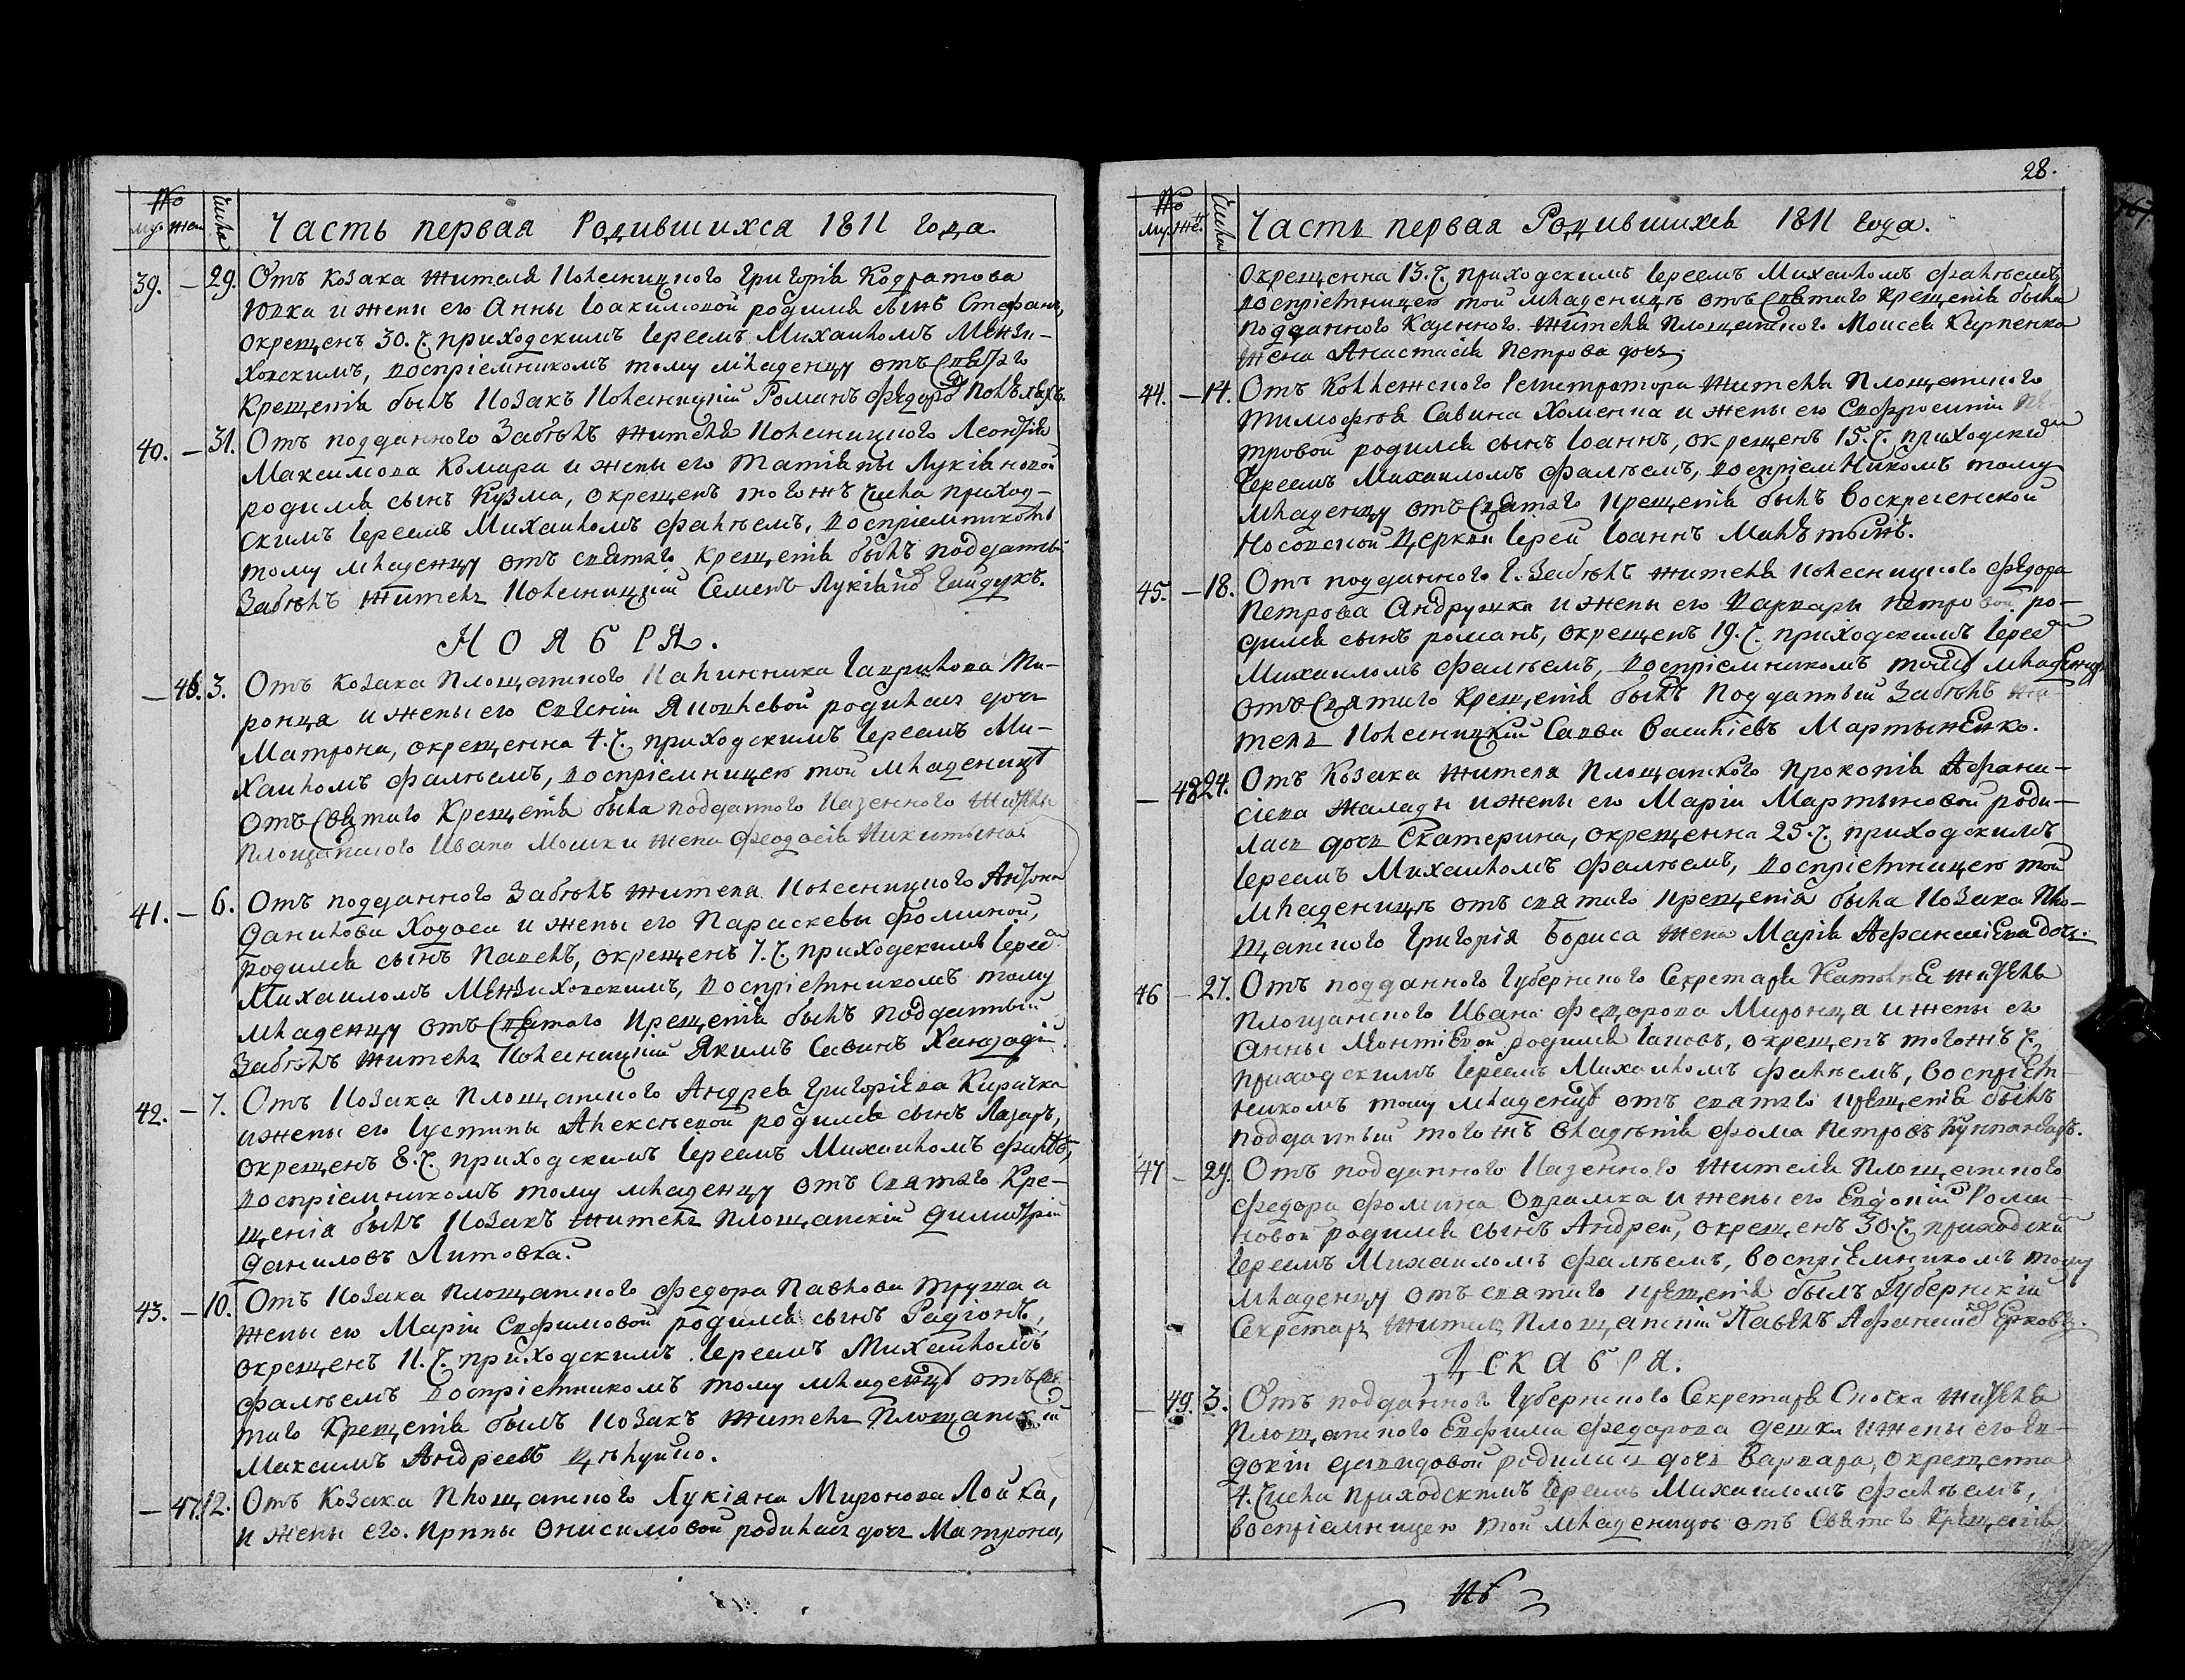 №
му. жен. Числа
Часть первая Родившихся 1811 года.
39. — 29. Отъ козака жителя Колесницкого Григорія Кодратова
и жены его Анны Іоакимовой родился сынъ Стефанъ,
окрещенъ 30. ч. приходскимъ Іереемъ Михаиломъ Менжи-
ховскимъ, воспріемникомъ тому младенцу отъ Святаго
Крещенія былъ козакъ Колесницкій Романъ Федоровъ
40. — 31. Отъ подданного Забѣлъ жителя Колесницкого Леонтія
Максимова Комара и жены его Татіаны Лукіановой
родился сынъ Кузма, окрещенъ того жъ числа приход-
скимъ Іереемъ Михаиломъ Фалѣемъ, воспріемникомъ
тому младенцу отъ святаго крещенія былъ подданный
Забѣлъ житель Колесницкій Семенъ Лукіановъ Гайдукъ.
НОЯБРЯ.
— 46. 3. Отъ козака Площанского Калинника Гаврилова Ми-
ронца и жены его Евгеніи Яковлевой родилась дочь
Матрона, окрещенна 4. ч. приходскимъ Іереемъ Ми-
хаиломъ Фалѣемъ, воспріемницею той младеницѣ
отъ Святаго Крещенія была подданного казенного жителя
Площанского Ивана Мошки жена Феодосія Никитына
41. — 6. Отъ подданного Забѣлъ жителя Колесницкого Антона
Данилова Ходоса и жены его Параскевы Фоминой,
родился сынъ Павелъ, окрещенъ 7. ч. приходскимъ Іереемъ
Михаиломъ Менжиховскимъ, воспріемникомъ тому
младенцу отъ Святаго Крещенія былъ подданный
Забѣлъ житель Колесницкій Якимъ Савинъ
42. — 7. Отъ козака Площанского Андрея Григоріева Кирячка
и жены его Іустины Алексѣевой родился сынъ Лазарь,
окрещенъ 8. ч. приходскимъ Іереемъ Михаиломъ Фалѣемъ,
воспріемникомъ тому младенцу отъ Святаго Кре-
щенія былъ козакъ житель Площанскій Димитрій
Даниловъ Литовка.
43. — 10. Отъ козака Площанского Федора Павлова Труша и
жены его Маріи Евфимовой родился сынъ Радіонъ,
окрещенъ 11. ч. приходскимъ Іереемъ Михаиломъ
Фалѣемъ воспріемникомъ тому младенцу отъ Свя-
таго Крещенія былъ козакъ житель Площанскій
Максимъ Андреевъ Цѣлуйко.
— 47. 12. Отъ козака Площанского Лукіяна Миронова Лойка,
и жены его Ирины Онисимовой родилась дочь Матрона,
28.
№
му. же. Числа
Часть первая Родившихся 1811 года.
окрещенна 13. ч. приходскимъ Іереемъ Михаиломъ Фалѣемъ,
воспріемницею той младеницѣ отъ Святаго Крещенія была
подданного казенного жителя Площанского Моисея Карпенка
жена Анастасія Петрова дочь
44. — 14. Отъ Коллежского Регистратора жителя Площанского
Тимофѣя Савина Хоменка и жены его Евфросиніи Пе
тровой родился сынъ Іоаннъ, окрещенъ 15. ч. приходскимъ
Іереемъ Михаиломъ Фалѣемъ, воспріемникомъ тому
младенцу отъ Святаго Крещенія былъ Воскресенской
Носовской Церкви Іерей Іоаннъ
45. — 18. Отъ подданного Г. Забѣлъ жителя Колесницкого Федора
Петрова Андрушка и жены его Варвары Петровой ро-
дился сынъ Романъ, окрещенъ 19. ч. приходскимъ Іереемъ
Михаиломъ Фалѣемъ, воспріемникомъ тому младенцу
отъ Святаго Крещенія былъ подданный Забѣлъ жи
тель Колесницкій Савва Василіевъ Мартыненко.
— 48 24. Отъ козака жителя Площанского Прокопія Афана-
сіева Жалады и жены его Маріи Мартыновой роди-
лась дочь Екатерина, окрещенна 25. ч. приходскимъ
Іереемъ Михаиломъ Фалѣемъ, воспріемницею той
младеницѣ отъ святаго крещенія была козака Пло-
щанского Григорія Бориса жена Марія Афанасіева дочь.
46 — 27. Отъ подданного Губернского Секретаря жителя
Площанского Ивана Федорова Миронца и жены его
Анны Леонтіевой родился Іаковъ, окрещенъ того жъ ч.
приходскимъ Іереемъ Михаиломъ Фалѣемъ, воспріем-
никомъ тому младенцу отъ святаго крещенія былъ
подданный того жъ владѣнія Фома Петровъ
47 — 29. Отъ подданного казенного жителя Площанского
Федора Фомина Оврамка и жены его Евдокіи Рома-
новой родился сынъ Андрей, окрещенъ 30. ч. приходским
Іереемъ Михаиломъ Фалѣемъ, воспріемникомъ тому
младенцу отъ святаго крещенія былъ Губернскій
Секретарь житель Площанскій Павелъ Афанасіевъ
Декабря.
— 49. 3. Отъ подданного Губернского Секретаря жителя
Площанского Евфима Федорова Дешка и жены его Ев-
докіи Демидовой родилась дочь Варвара, окрещенна
4. числа приходскимъ Іереемъ Михаиломъ Фалѣемъ,
воспріемницею той младеницѣ отъ Святаго Крещенія